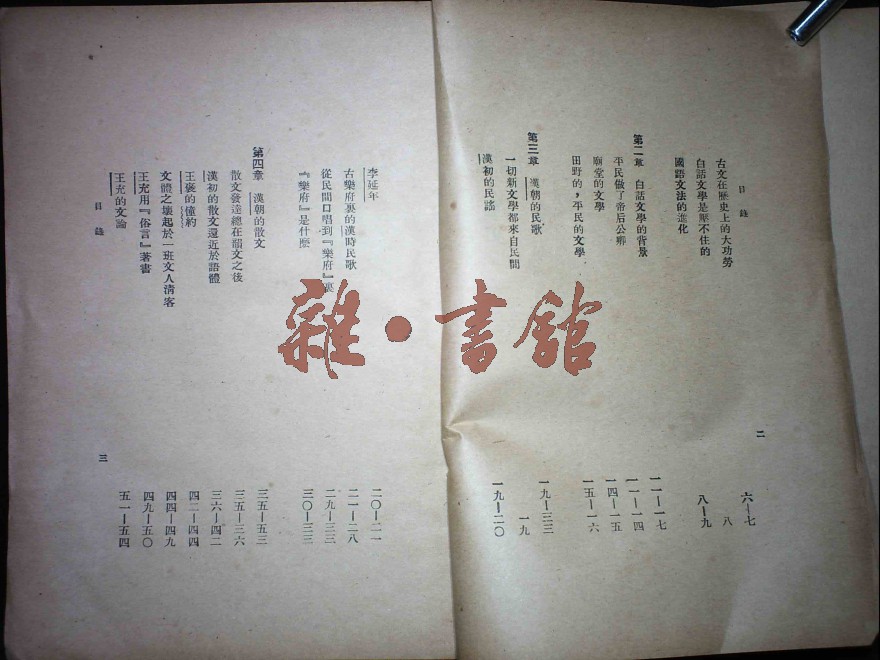 目錄 二
古文在歷史上的大功勞 六—七
白話文學是壓不住的 八
國語文法的進化 八—九
第二章 白話文學的背景 一一—一七
平民做了帝后公卿 一一—一四
廟堂的文學 一四—一五
田野的，平民的文學 一五—一六
第三章 漢朝的民歌 一九—三三
一切新文學都來自民間 一九
漢初的民謠 一九—二〇
李延年 二〇—二一
古樂府裏的漢時民歌 二一—二八
從民間口唱到『樂府』裏 二九—三三
『樂府』是什麼 三〇—三三
第四章 漢朝的散文 三五—五三
散文發達總在韻文之後 三五—三六
漢初的散文還近於語體 三六—四二
王褒的僮約 四二—四四
文體之壞起於一班文人清客 四四—四九
王充用『俗言』著書 四九—五〇
王充的文論 五一—五四
目錄 三
雜·書舘